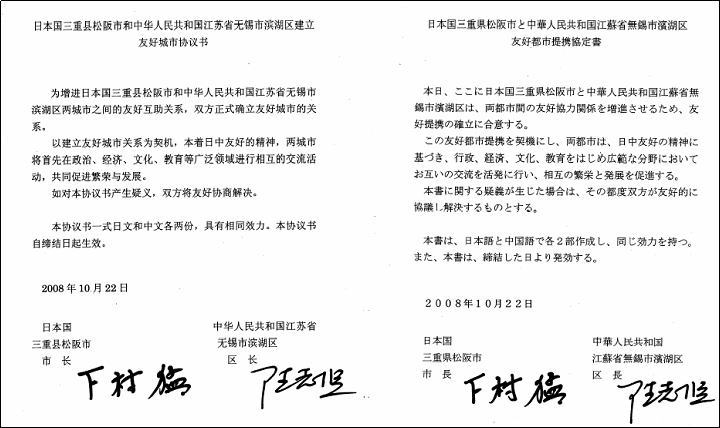 日本国三重县松阪市和中华人民共和国江苏省无锡市滨湖区建立
友好城市协议书
为增进日本国三重县松阪市和中华人民共和国江苏省无锡市
滨湖区两城市之间的友好互助关系，双方正式确立友好城市的关
系。
以建立友好城市关系为契机，本着日中友好的精神，两城市
将首先在政治、经济、文化、教育等广泛领域进行相互的交流活
动，共同促进繁荣与发展。
如对本协议书产生疑义，双方将友好协商解决。
本协议书一式日文和中文各两份，具有相同效力。本协议书
自缔结日起生效。
2008年10月22日
日本国
三重县松阪市
市 长
下村猛
中华人民共和国江苏省
无锡市滨湖区
区 长
日本国三重県松阪市と中華人民共和国江蘇省無錫市濱湖区
友好都市提携協定書
本日、ここに日本国三重県松阪市と中華人民共和国江蘇省無
錫市濱湖区は、両都市間の友好協力関係を増進させるため、友
好提携の確立に合意する。
この友好都市提携を契機にし、両都市は、日中友好の精神に
基づき、行政、経済、文化、教育をはじめ広範な分野において
お互いの交流を活発に行い、相互の繁栄と発展を促進する。
本書に関する疑義が生じた場合は、その都度双方が友好的に
協議し解決するものとする。
本書は、日本語と中国語で各２部作成し、同じ効力を持つ。
また、本書は、締結した日より発効する。
２００８年１０月２２日
日本国
三重県松阪市
市 長
下村猛
中華人民共和国
江蘇省無錫市濱湖区
区 長